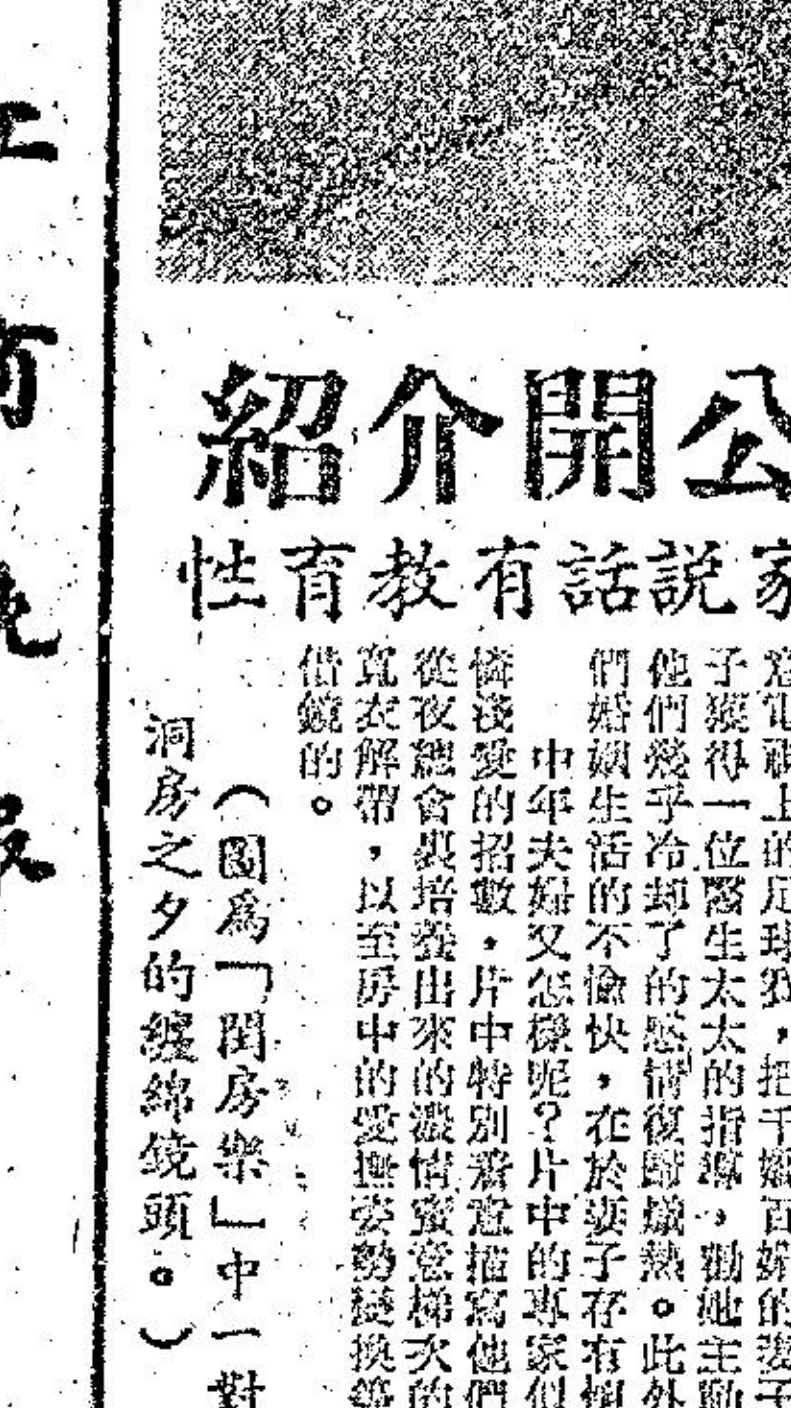 紹介開公
性育教有話説家
子獲得一位醫生太太的指導，勸她主動
他們幾乎冷却了的感情復歸熾熱。此外
們婚姻生活的不愉快，在於妻子存有
中年夫婦又怎樣呢？片中的專家似
憐後愛的招數，片中特別着意描寫他們
從夜總會裏培養出來的濃情蜜意梯次的
寬衣解帶，以至房中的愛撫姿勢變換等
借鏡的。
（圖爲「閨房樂」中一對
洞房之夕的纏綿鏡頭。）